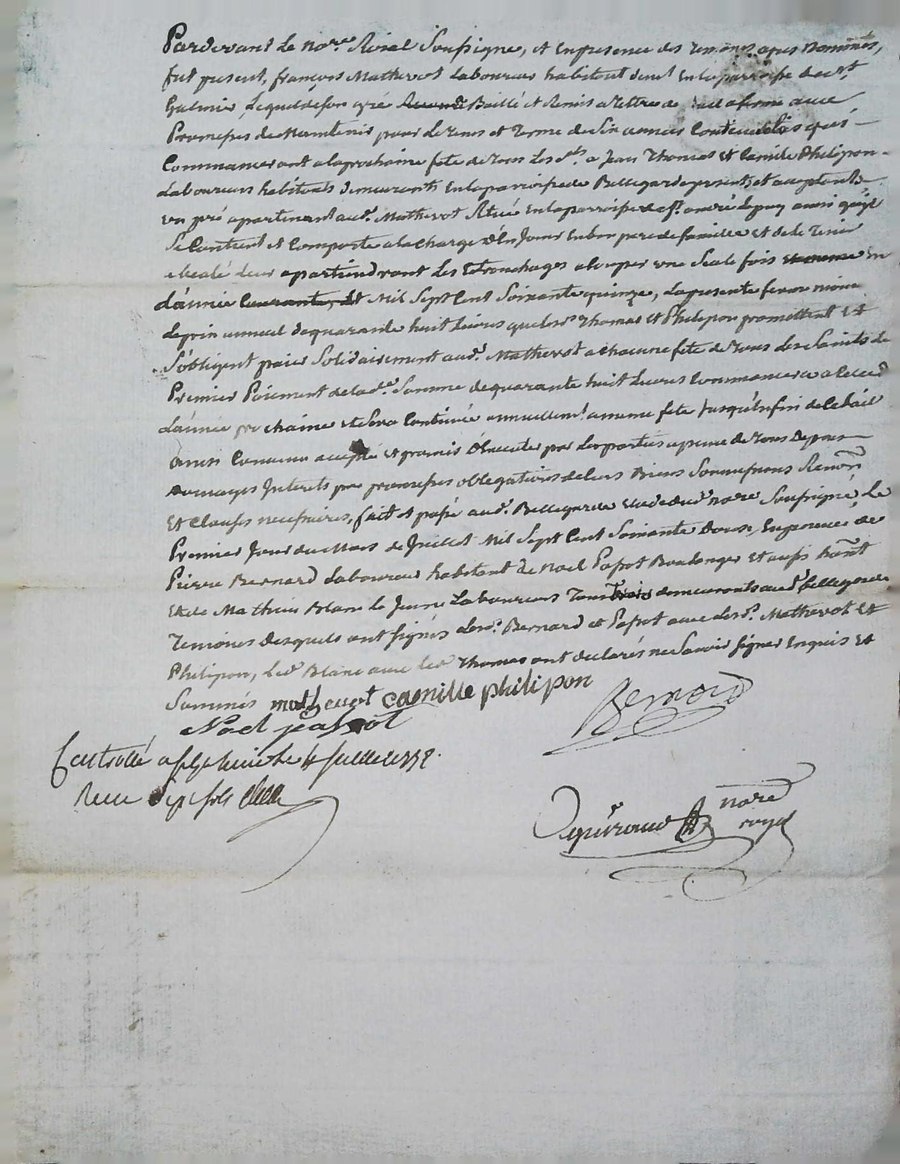 Pardevant Le no.re Roial Soussigne, et En presence des Temoins apres Nommés,
fut present, François Mathevot Laboureur habitant de
Galmier, Lequel de son gré Baillé et Remis a Tittres de ferme avec
Promesses de Maintenir pour Le Tems et Terme de Six années Continuelles qui
Commanceront a la prochaine fete de Tous Les S.ts a Jean Thomas et Camille Philipon
Laboureurs habitants demeurants En la parroisse de Bellegarde presents et acceptants
un pré apartenant aud. Mathevot Situé En la parroisse de S.t andré Le puy ainsi qu'il
Se Contient et Comporte a la Charge d'En Jouir En bon pere de famille et de le Tenir
apartiendront Les Etronchages a Couper une Seule fois En
L'année Courante, Et Mil Sept Cent Soixante quinze, La presente ferme
de prix annuel de quarante huit Livres que Les Thomas et Philipon promettent et
S'obligent paier Solidairement aud. Mathevot a chacune fete de Tous Les Saints Le
Premier Paiement de lad.e Somme de quarante huit Livres Commancera a
L'année prochaine et Sera Continué annuellem.t a meme fete Jusqu'En fin de Le bail
ainsi Convenu accepté et promis Observer par Les parties a peine de Tous Depens
Domages Interets par promesses obligations de leurs Biens Soumissions Renon
Et Clauses necessaires, fait et passé aud. Bellegarde Etude dud. no.re Soussigné, Le
Premier Jour du Mois de Juillet Mil Sept Cent Soixante Douze, En presence de
Pierre Bernard Laboureur habitant de Noel Passot Boulanger Et aussi
Et de Mathieu Blanc Le Jeune Laboureur demeurants aud. bellegarde
Temoins desquels ont signés Les. Bernard et Passot avec Les. Mathevot Et
Philipon, Led. Blanc avec Led. Thomas ont declarés ne Savoir signer Enquis Et
Sommés mathevot camille philipon
Bernard
Noel passot
Controllé a S.t Galmier Le 4 Juillet 1772.
Receu Sept sols
no.re
royal